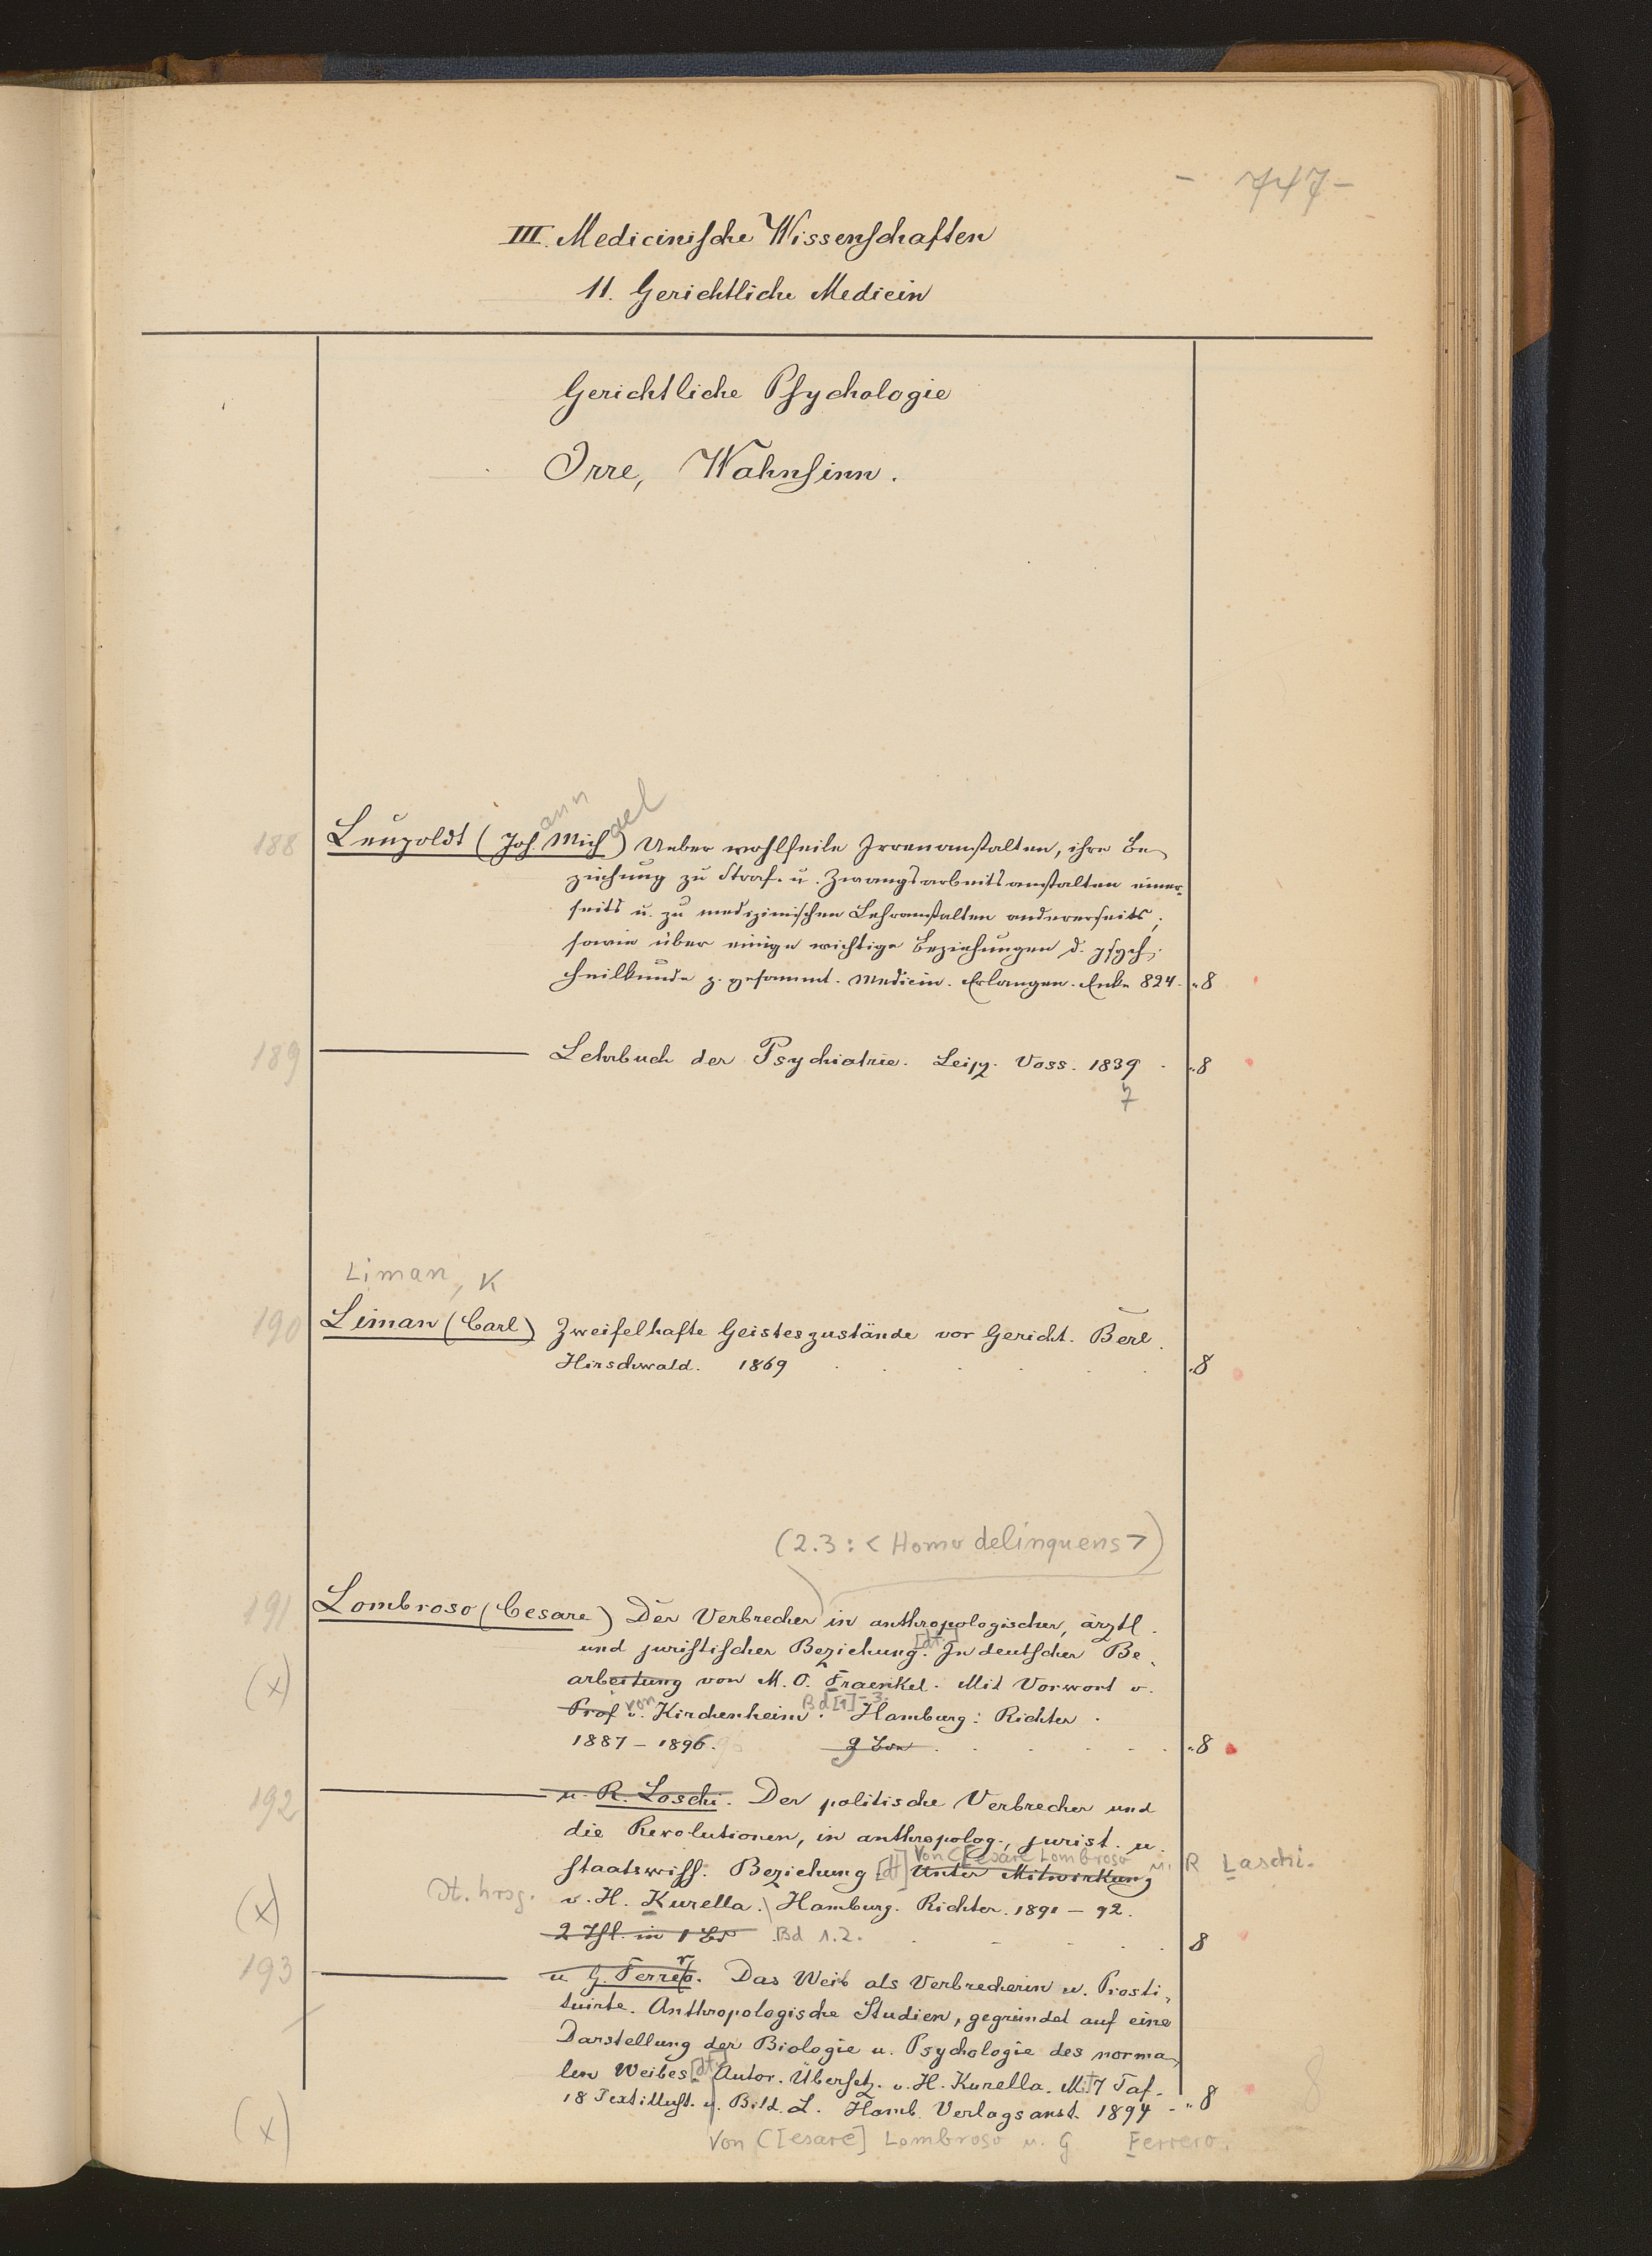 - 747 -
III. Medicinische Wissenschaften
11. Gerichtliche Medicin
Gerichtliche Psychologie
Irre, Wahnsinn.
ann ael
188 Leupoldt (Joh. Mich) Ueber wohlfeile Irrenanstalten, ihre Be-
ziehung zu Straf- u. Zwangsarbeitsanstalten einer-
seits u. zu medizinischen Lehranstalten andererseits,
sowie über einige wichtige Beziehungen d. psych.
Heilkunde z. gesammt. Medicin. Erlangen. Enke 824. „8
189 Lehrbuch der Psychiatrie. Leipz. Voss. 1839 . „8
7
Liman, K
190 Liman (Carl) Zweifelhafte Geisteszustände vor Gericht. Berl.
Hirschwald. 1869 . . . . . „8
(2.3: < Homo delinquens >)
191 Lombroso (Cesare) Der Verbrecher in anthropologischer, ärztl.
und juristischer Beziehung. [dt.] In deutscher Be-
(x) arbeitung von M. O. Fraenkel. Mit Vorwort v.
Prof v. von Kirchenheim. Bd [1]-3. Hamburg: Richter.
1887 – 1896. 96 3 Bde . . . . . „8
192 u. R. Laschi. Der politische Verbrecher und
die Revolutionen, in anthropolog., jurist. u.
staatswiss. Beziehung [dt] Unter Mitwirkung Von C[esare Lombroso u. R Laschi.
(x) Dt. hrsg. v. H. Kurella. Hamburg. Richter. 1891 – 92.
2 Thl. in 1 Bd Bd 1.2. . . . . 8
193 u G. Ferrero. Das Weib als Verbrecherin u. Prosti-
tuirte. Anthropologische Studien, gegründet auf eine
Darstellung der Biologie u. Psychologie des norma-
len Weibes. [dt.] Autor. Übersetz. v. H. Kurella. Mit 7 Taf.
18 Textillust. u. Bild. L. Hamb. Verlagsanst. 1894 . „8
8
(x) Von C[esare] Lombroso u. G Ferrero.